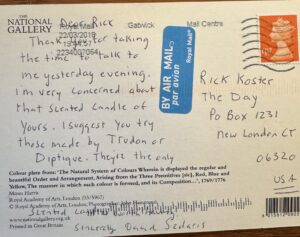 THE
NATIONAL
GALLERY
Dear Rick
Royal Mail
Gatwick
Mail Centre
22/03/2019
Thank you for taking
the time to talk to
2234007064
me yesterday evening.
I'm very concerned about
that scented candle of
yours. I suggest you try
those made by Trudon or
Diptique. They're the only
BY AIR MAIL
par avion
Royal Mail
Rick Koster
The Day
PO Box 1231
New London CT
06320
USA
Colour plate from: 'The Natural System of Colours Wherein is displayed the regular and
beautiful Order and Arrangement, Arising from the Three Primitives [sic], Red, Blue and
Yellow, The manner in which each colour is formed, and its Composition...', 1769/1776
Moses Harris
Royal Academy of Arts, London
© Royal Academy of Arts, London
Scented
www.nationalgallery.org.uk
Printed in Great Britain
Sincerely David Sedaris